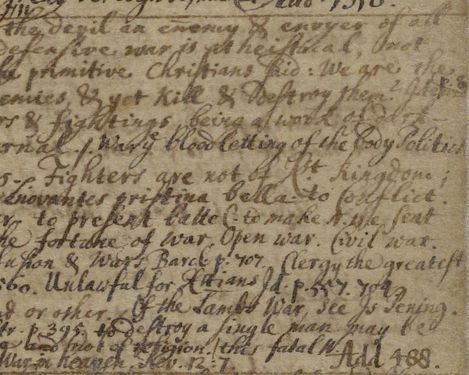 the devil an enemy & envyer of all
defensive war is atheistical, not
primitive Christians did: We are the
enemies, & yet kill & Destroy them?
rs & fightings, being a work of dark
ernal. / War ye bloodletting of the Body Politick
Fighters are not of Xts Kingdom;
Renovantes pristina bella to Conflict.
to present battel: to make the seat
he fortune of War. Open war. Civil war.
fusion & Wars Barcl. p. 707. Clergy the greatest
560. Unlawful for Xtians Id. p. 557. 709
or other. Of the Lambs War, see Is. Pening.
tr. p. 395. to destroy a single man may be
and not of religion, this fatal W
War in heaven, Rev. 12-7. Add 488.